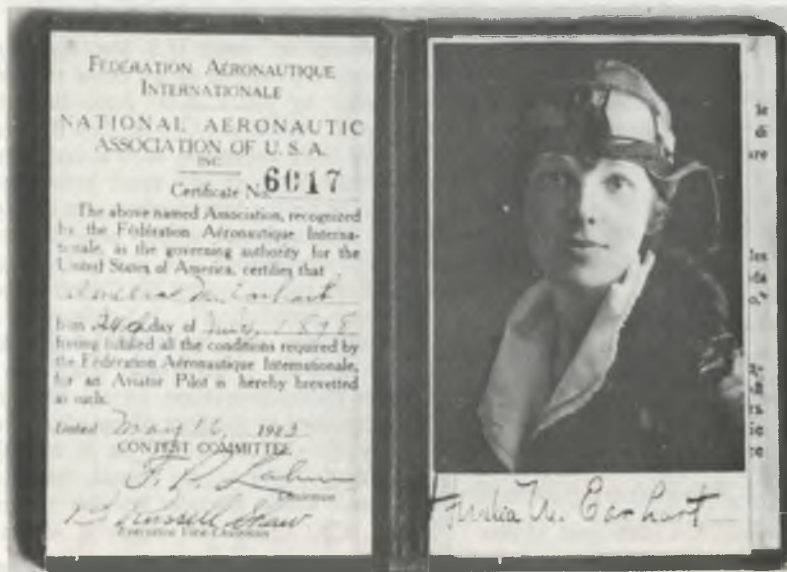 FÉDÉRATION AÉRONAUTIQUE
INTERNATIONALE
NATIONAL AERONAUTIC
ASSOCIATION OF U. S. A.
INC
Certificate No. 6017
The above named Association, recognized
by the Fédération Aéronautique Interna-
tionale, as the governing authority for the
United States of America, certifies that
Amelia M. Earhart
born 24th day of July, 1898
having fulfilled all the conditions required by
the Fédération Aéronautique Internationale,
for an Aviator Pilot is hereby brevetted
as such.
Dated May 16, 1923
CONTEST COMMITTEE
F. P. Lahm
Chairman
B. Russell Shaw
Executive Vice-Chairman
Amelia M. Earhart
le
di